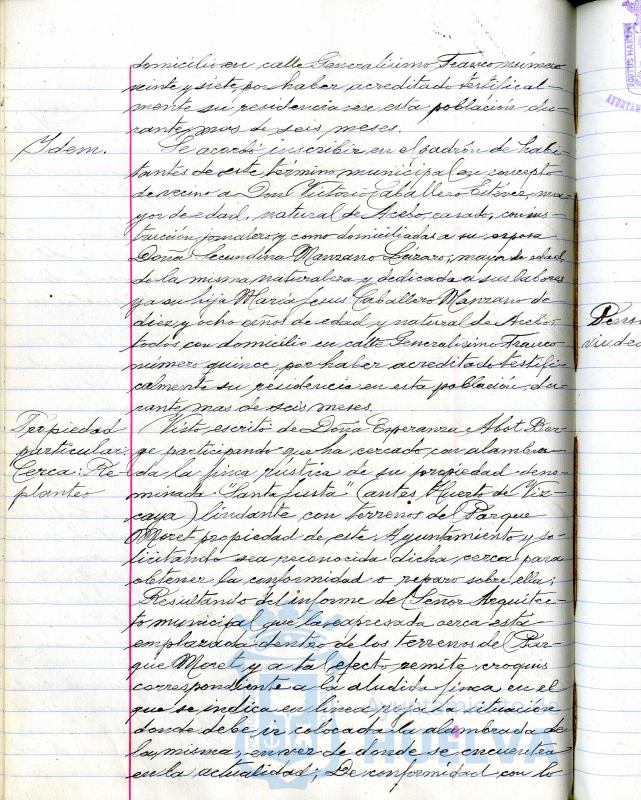 domicilio en calle Generalísimo Franco número
veinte y siete, por haber acreditado testifical-
mente su residencia en esta población du-
rante mas de seis meses.
Idem.
Se acordó inscribir en el padrón de habi-
tantes de este término municipal en concepto
de vecino a Don Victorio Caballero Estévez, ma-
yor de edad, natural de Acebo, casado, con ins-
trucción, jornalero y como domiciliadas a su esposa
Doña Secundina Manzano Lázaro, mayor de edad
de la misma naturaleza y dedicada a sus labores
y a su hija María Jesus Caballero Manzano de
diez y ocho años de edad y natural de Acebo,
todos con domicilio en calle Generalísimo Franco
número quince, por haber acreditado testifi-
calmente su residencia en esta población du-
rante mas de seis meses.
Propiedad
particular:
Cerca: Re-
planteo
Visto escrito de Doña Esperanza Abot Bor-
ge participando que ha cercado con alambra-
da la finca rústica de su propiedad deno-
minada "Santa Justa" (antes Huerto de Viz-
caya) lindante con terrenos del Parque
Moret propiedad de este Ayuntamiento y so-
licitando sea reconocida dicha cerca para
obtener la conformidad o reparo sobre ella;
Resultando del informe del Señor Arquitec-
to municipal que la expresada cerca está
emplazada dentro de los terrenos del Par-
que Moret y a tal efecto remite croquis
correspondiente a la aludida finca en el
que se indica en línea roja la situación
donde debe ir colocada la alambrada de
la misma, en vez de donde se encuentra
en la actualidad; De conformidad con lo
Ayuntamiento de
HUELVA